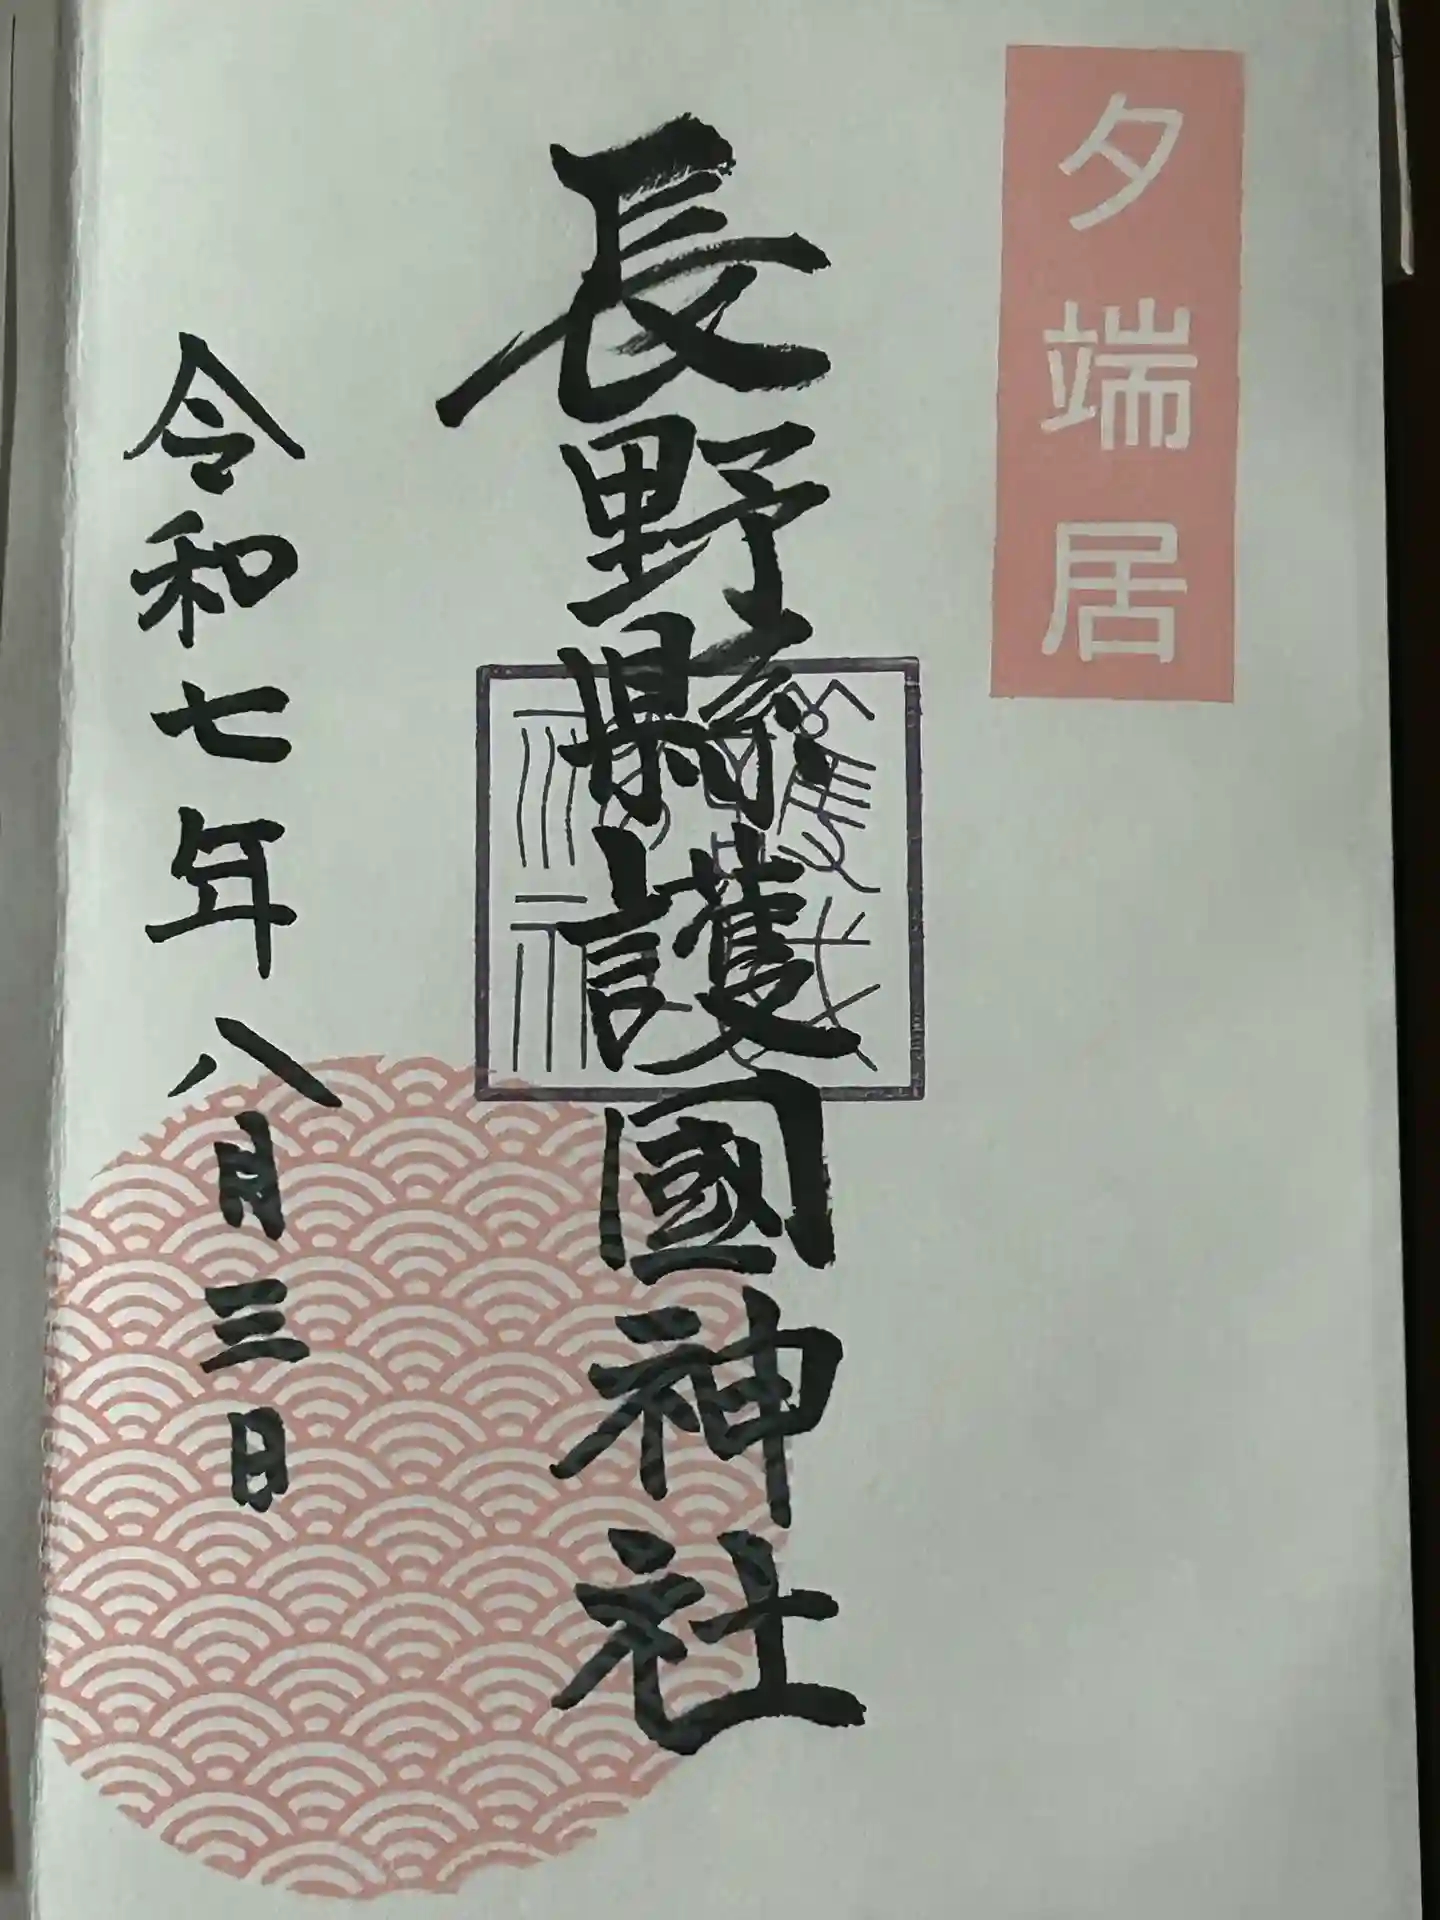 夕端居
長野縣護國神社
令和七年八月三日